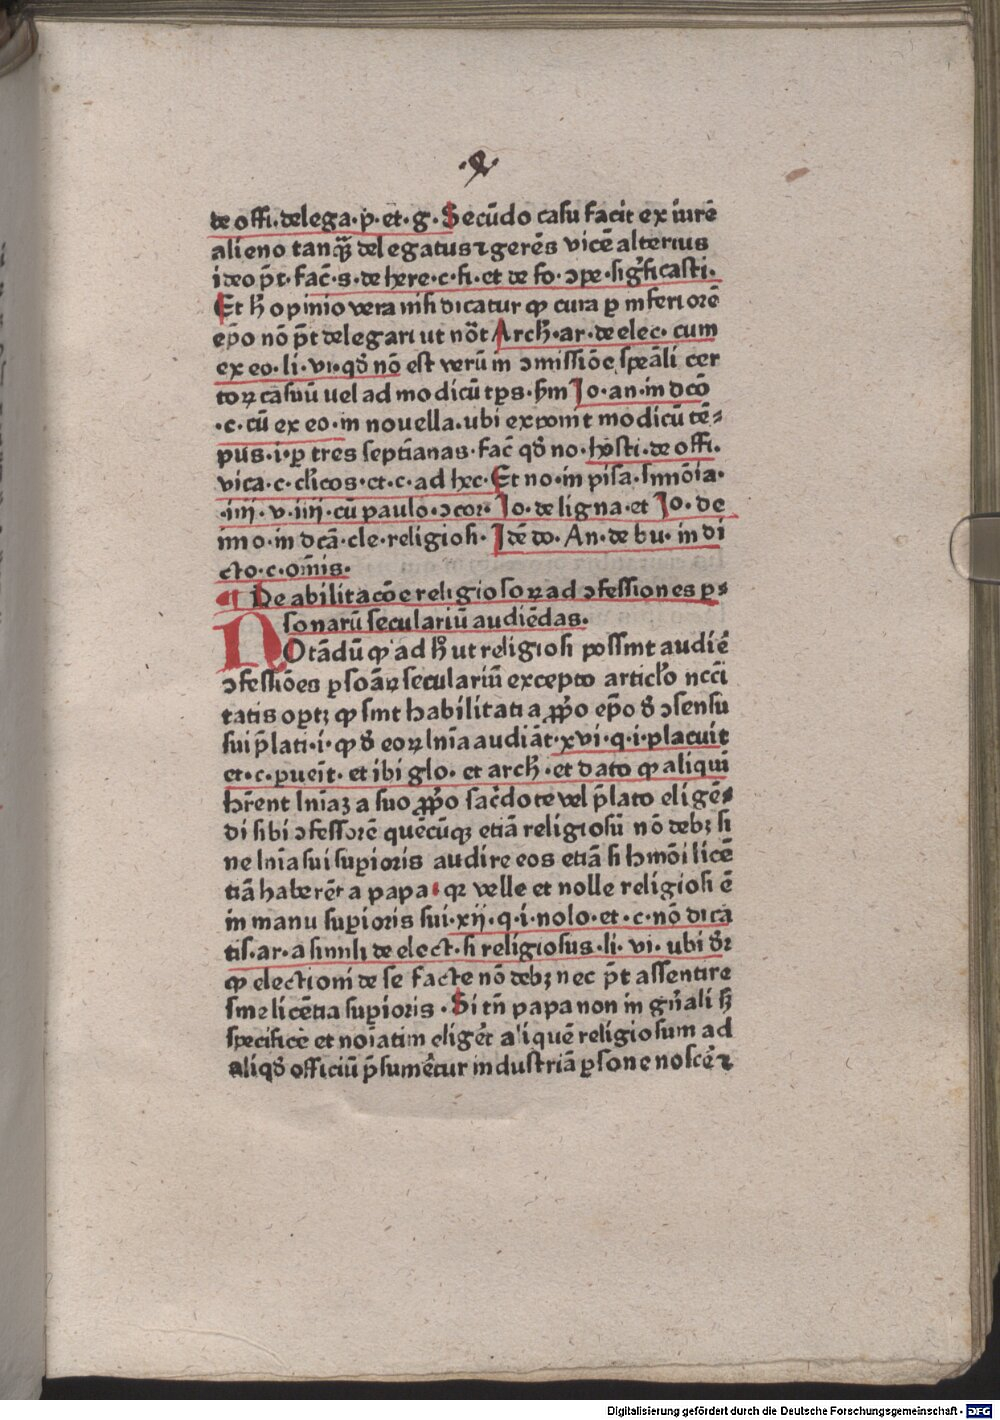 de offi. delega. p̄. et. g. Secūdo casu facit ex iurē
alieno tanq̄ȝ delegatus ⁊ gerēs vicē alterius
ideo pōt. fac̄. s. de here. c. fi. et de fo. ↄpe. sig̃ficasti.
Et h̄ opinio vera nisi dicatur ꝙ cura ꝑ inferiorē
ep̄o nō pōt delegari ut nōt Arch̄. ar. de elec. cum
ex eo. li. vi. qd̄ nō est verū in ↄmissiōe spēali cer
toꝝ casuū uel ad modicū tp̄s. hm̄ Jo. an. in dcō
.c. cū ex eo. in nouella. ubi exponit modicū tē⸗
pus. i. ꝑ tres septīanas. fac̄ qd̄ no. hōsti. de offi.
vica. c. cl̄icos. et. c. ad hec. Et no. in pisa. simōīa.
.iiij. v. iiij. cū paulo. ↄcor. Jo. de ligna. et Jo. de
imo. in dcā. cle. religiosi. Idē do. An. de bu. in di
cto. c. om̄is.
¶ De abilitacōe religiosoꝝ ad ↄfessiones ꝑ⸗
sonarū seculariū audiēdas.
NOtādū ꝙ ad h̄ ut religiosi possint audiē
ↄfessiōes ꝑsoāꝝ seculariū excepto articl̄o ncc̄i
tatis optȝ ꝙ sint habilitati a ꝓp̄o ep̄o d̄ ↄsensu
sui p̄lati. i. ꝙ d̄ eoꝝ ln̄ia audiāt. xvi. q. i. placuit
et. c. ꝑueīt. et ibi glo. et arch̄. et dato ꝙ aliqui
hr̄ent ln̄iaȝ a suo ꝓp̄o sac̄dote vel p̄lato eligē⸗
di sibi ↄfessorē quēcūqȝ etiā religiosū nō debȝ si
ne ln̄ia sui suꝑioris audire eos etiā si hmōi licē
tiā haberēt a papa. qꝛ velle et nolle religiosi ē
in manu suꝑioris sui. xij. q. i. nolo. et. c. nō dica
tis. ar. a simili de elect. si religiosus. li. vi. ubi d̄r
ꝙ electioni de se facte nō debȝ nec pōt assentire
sine licētia suꝑioris. Si tn̄ papa non in gn̄ali sȝ
specifice et noīatim eliget̄ aliquē religiosum ad
aliqd̄ officiū p̄sumet̄ur industriā ꝑsone noscēs